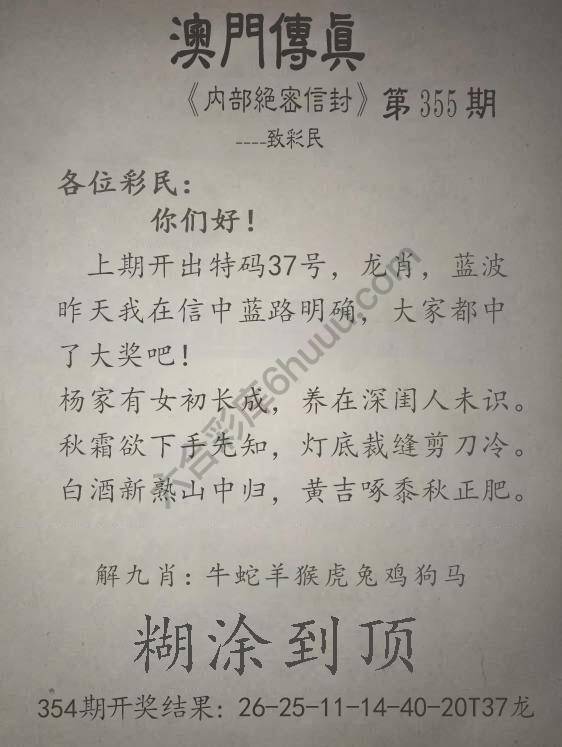 澳門傳眞
《内部絕密信封》第355期
----致彩民
各位彩民：
你们好！
上期开出特码37号，龙肖，蓝波
昨天我在信中蓝路明确，大家都中
了大奖吧！
杨家有女初长成，养在深闺人未识。
秋霜欲下手先知，灯底裁缝剪刀冷。
白酒新熟山中归，黄吉啄黍秋正肥。
六合彩库6huuu.com
解九肖：牛蛇羊猴虎兔鸡狗马
糊涂到顶
354期开奖结果：26-25-11-14-40-20T37龙